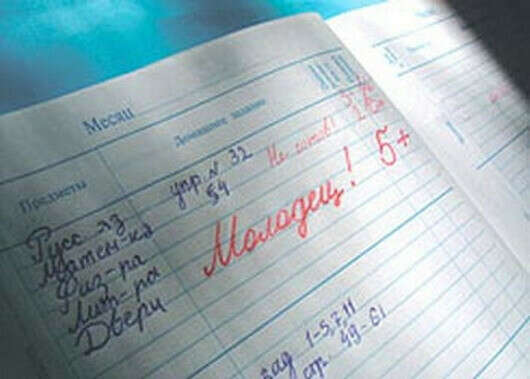 Месяц
Предметы
Домашнее задание
Русс яз
упр. N 32
§4
Не готов!
Матем-ка
Физ-ра
Молодец! 5+
Лит-ра
Двери
зад 1-5,7,11
стр. 49-61